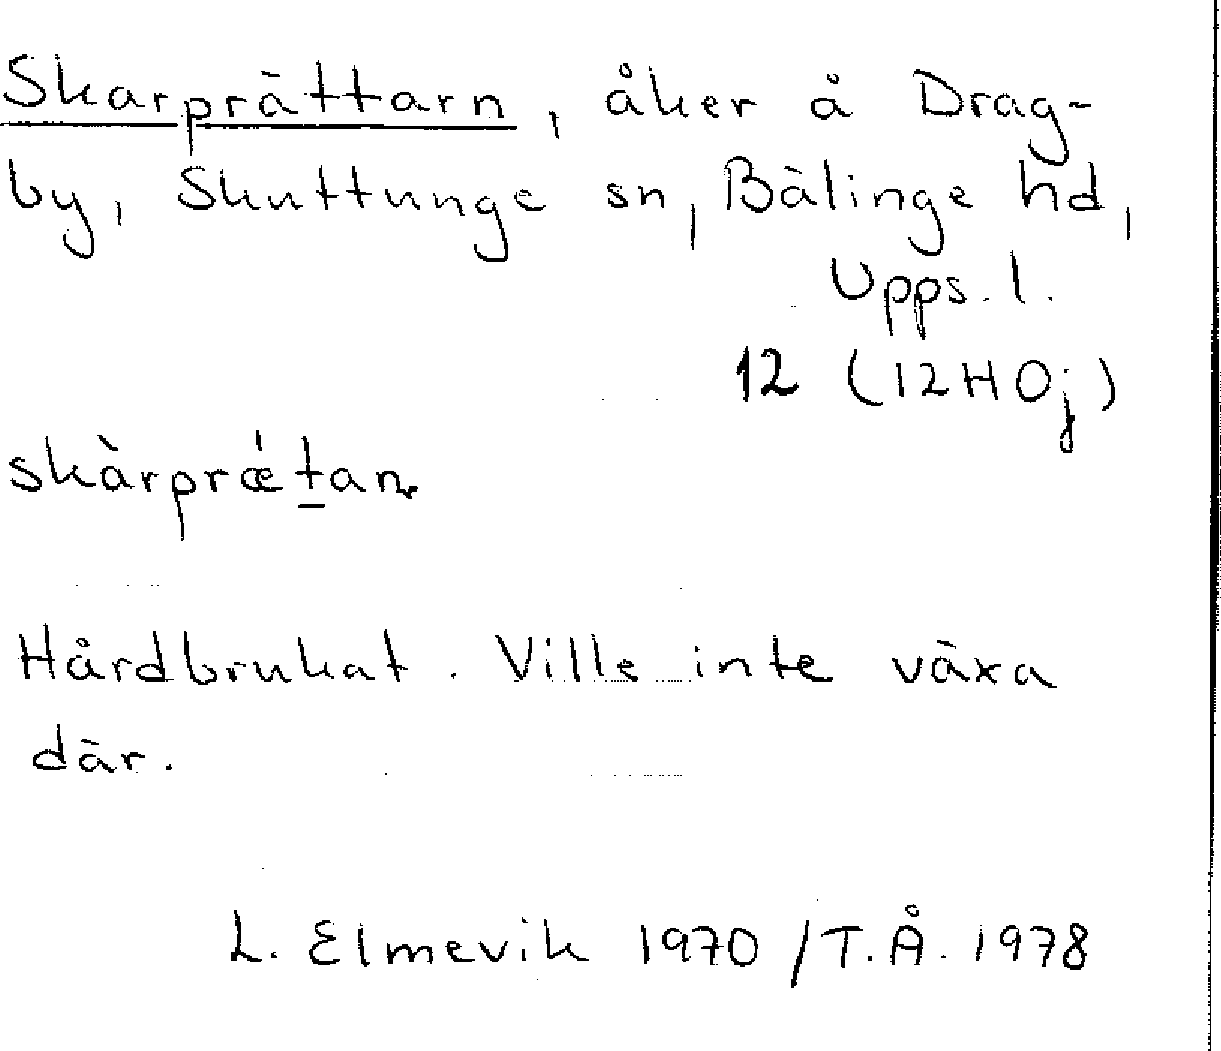 Skarprättarn, åker å Drag-
by, Skuttunge sn, Bälinge hd,
Upps. l.
12 (12H0j)
skàrprǽtan
Hårdbrukat. Ville inte växa
där.
L. Elmevik 1970 /T.Å. 1978